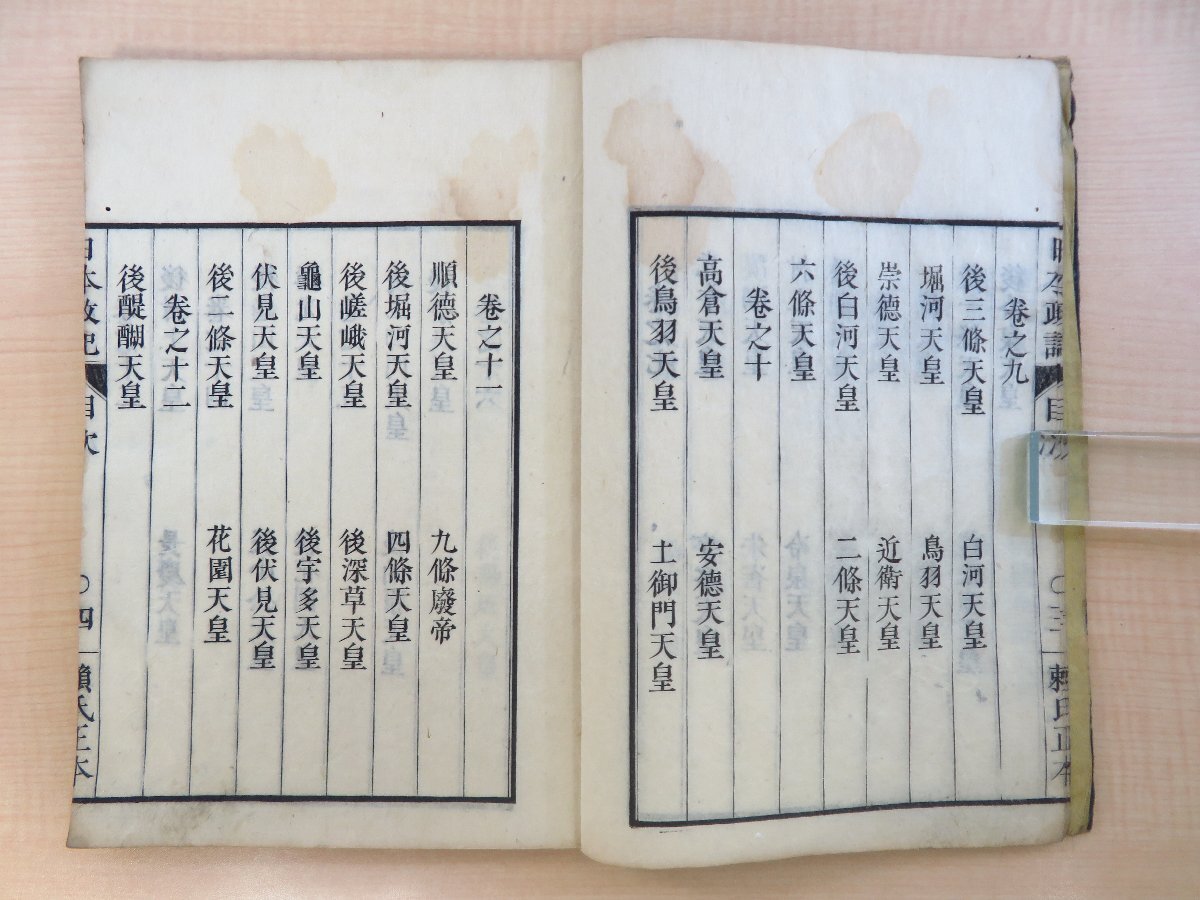 卷之九
後三條天皇 白河天皇
堀河天皇 鳥羽天皇
崇德天皇 近衛天皇
後白河天皇 二條天皇
六條天皇
卷之十
高倉天皇 安德天皇
後鳥羽天皇 土御門天皇
卷之十一
順德天皇 九條廢帝
後堀河天皇 四條天皇
後嵯峨天皇 後深草天皇
龜山天皇 後宇多天皇
伏見天皇 後伏見天皇
後二條天皇 花園天皇
卷之十二
後醍醐天皇
日本政記 目次 〇四 賴氏正本